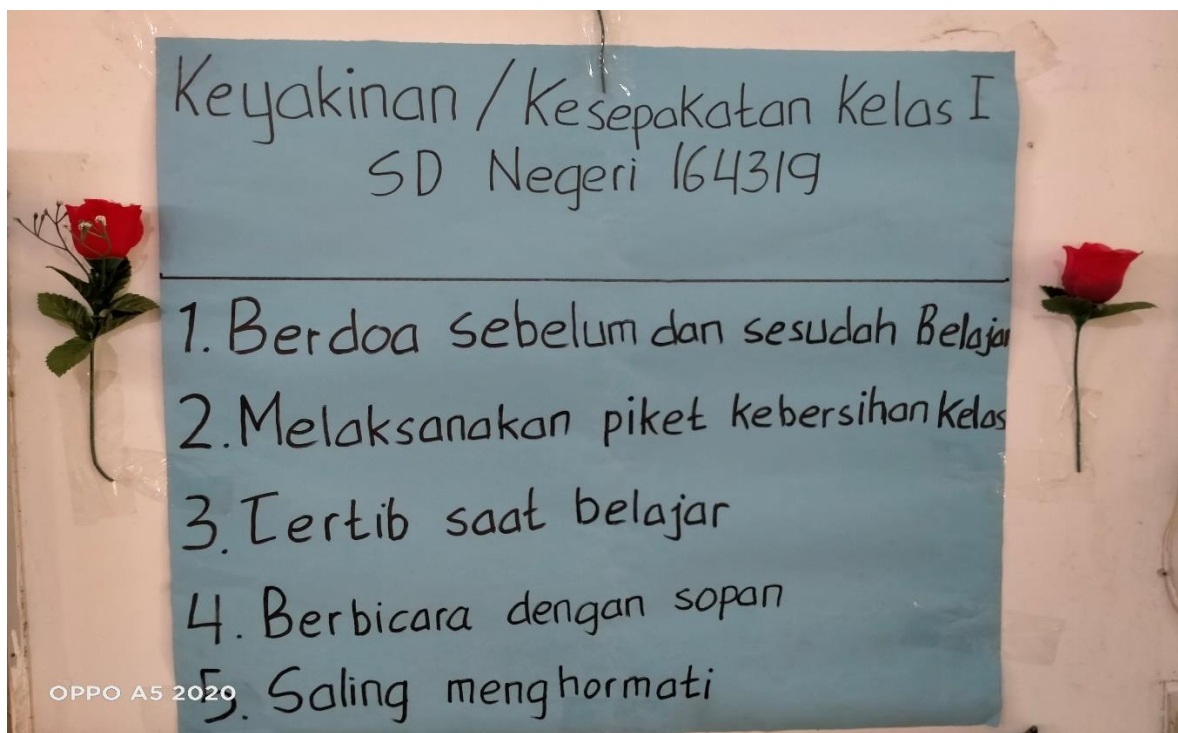 Keyakinan / Kesepakatan Kelas I
SD Negeri 164319
1. Berdoa sebelum dan sesudah Belajar
2. Melaksanakan piket kebersihan Kelas
3. Tertib saat belajar
4. Berbicara dengan sopan
5. Saling menghormati
OPPO A5 2020